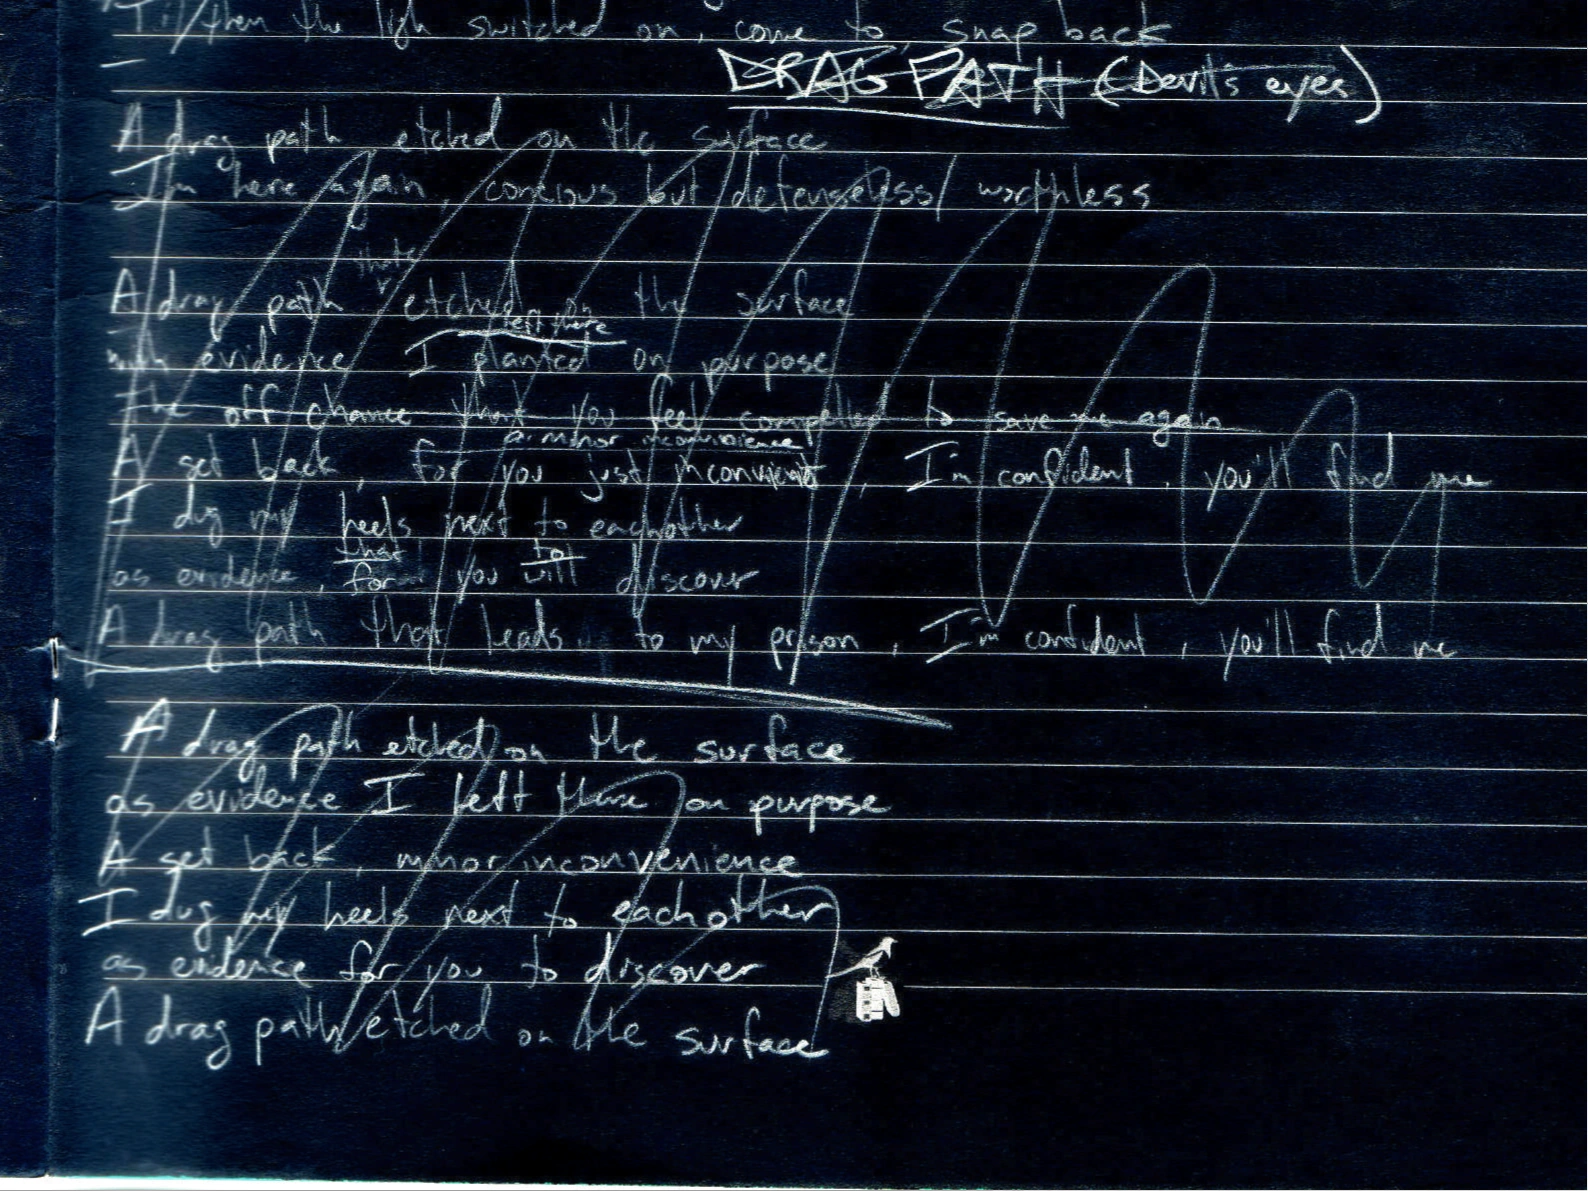 Til/then the ligh switched on, come to, snap back
DRAG PATH (Devil's eyes)
A drag path etched on the surface
I'm here again, concious but defenseless/ worthless
thats
A drag path etched on the surface
left there
with evidence I planted on purpose
the off chance that you feel compelled to save me again
a minor inconvinience
A set back, for you just inconvinient, I'm confident, you'll find me
I dug my heels next to eachother
that to
as evidence, for you will discover
A drag path that leads to my prison, I'm confident, you'll find me
A drag path etched on the surface
as evidence I left there on purpose
A set back, minor inconvenience
I dug my heels next to each other
as evidence for you to discover
A drag path etched on the surface